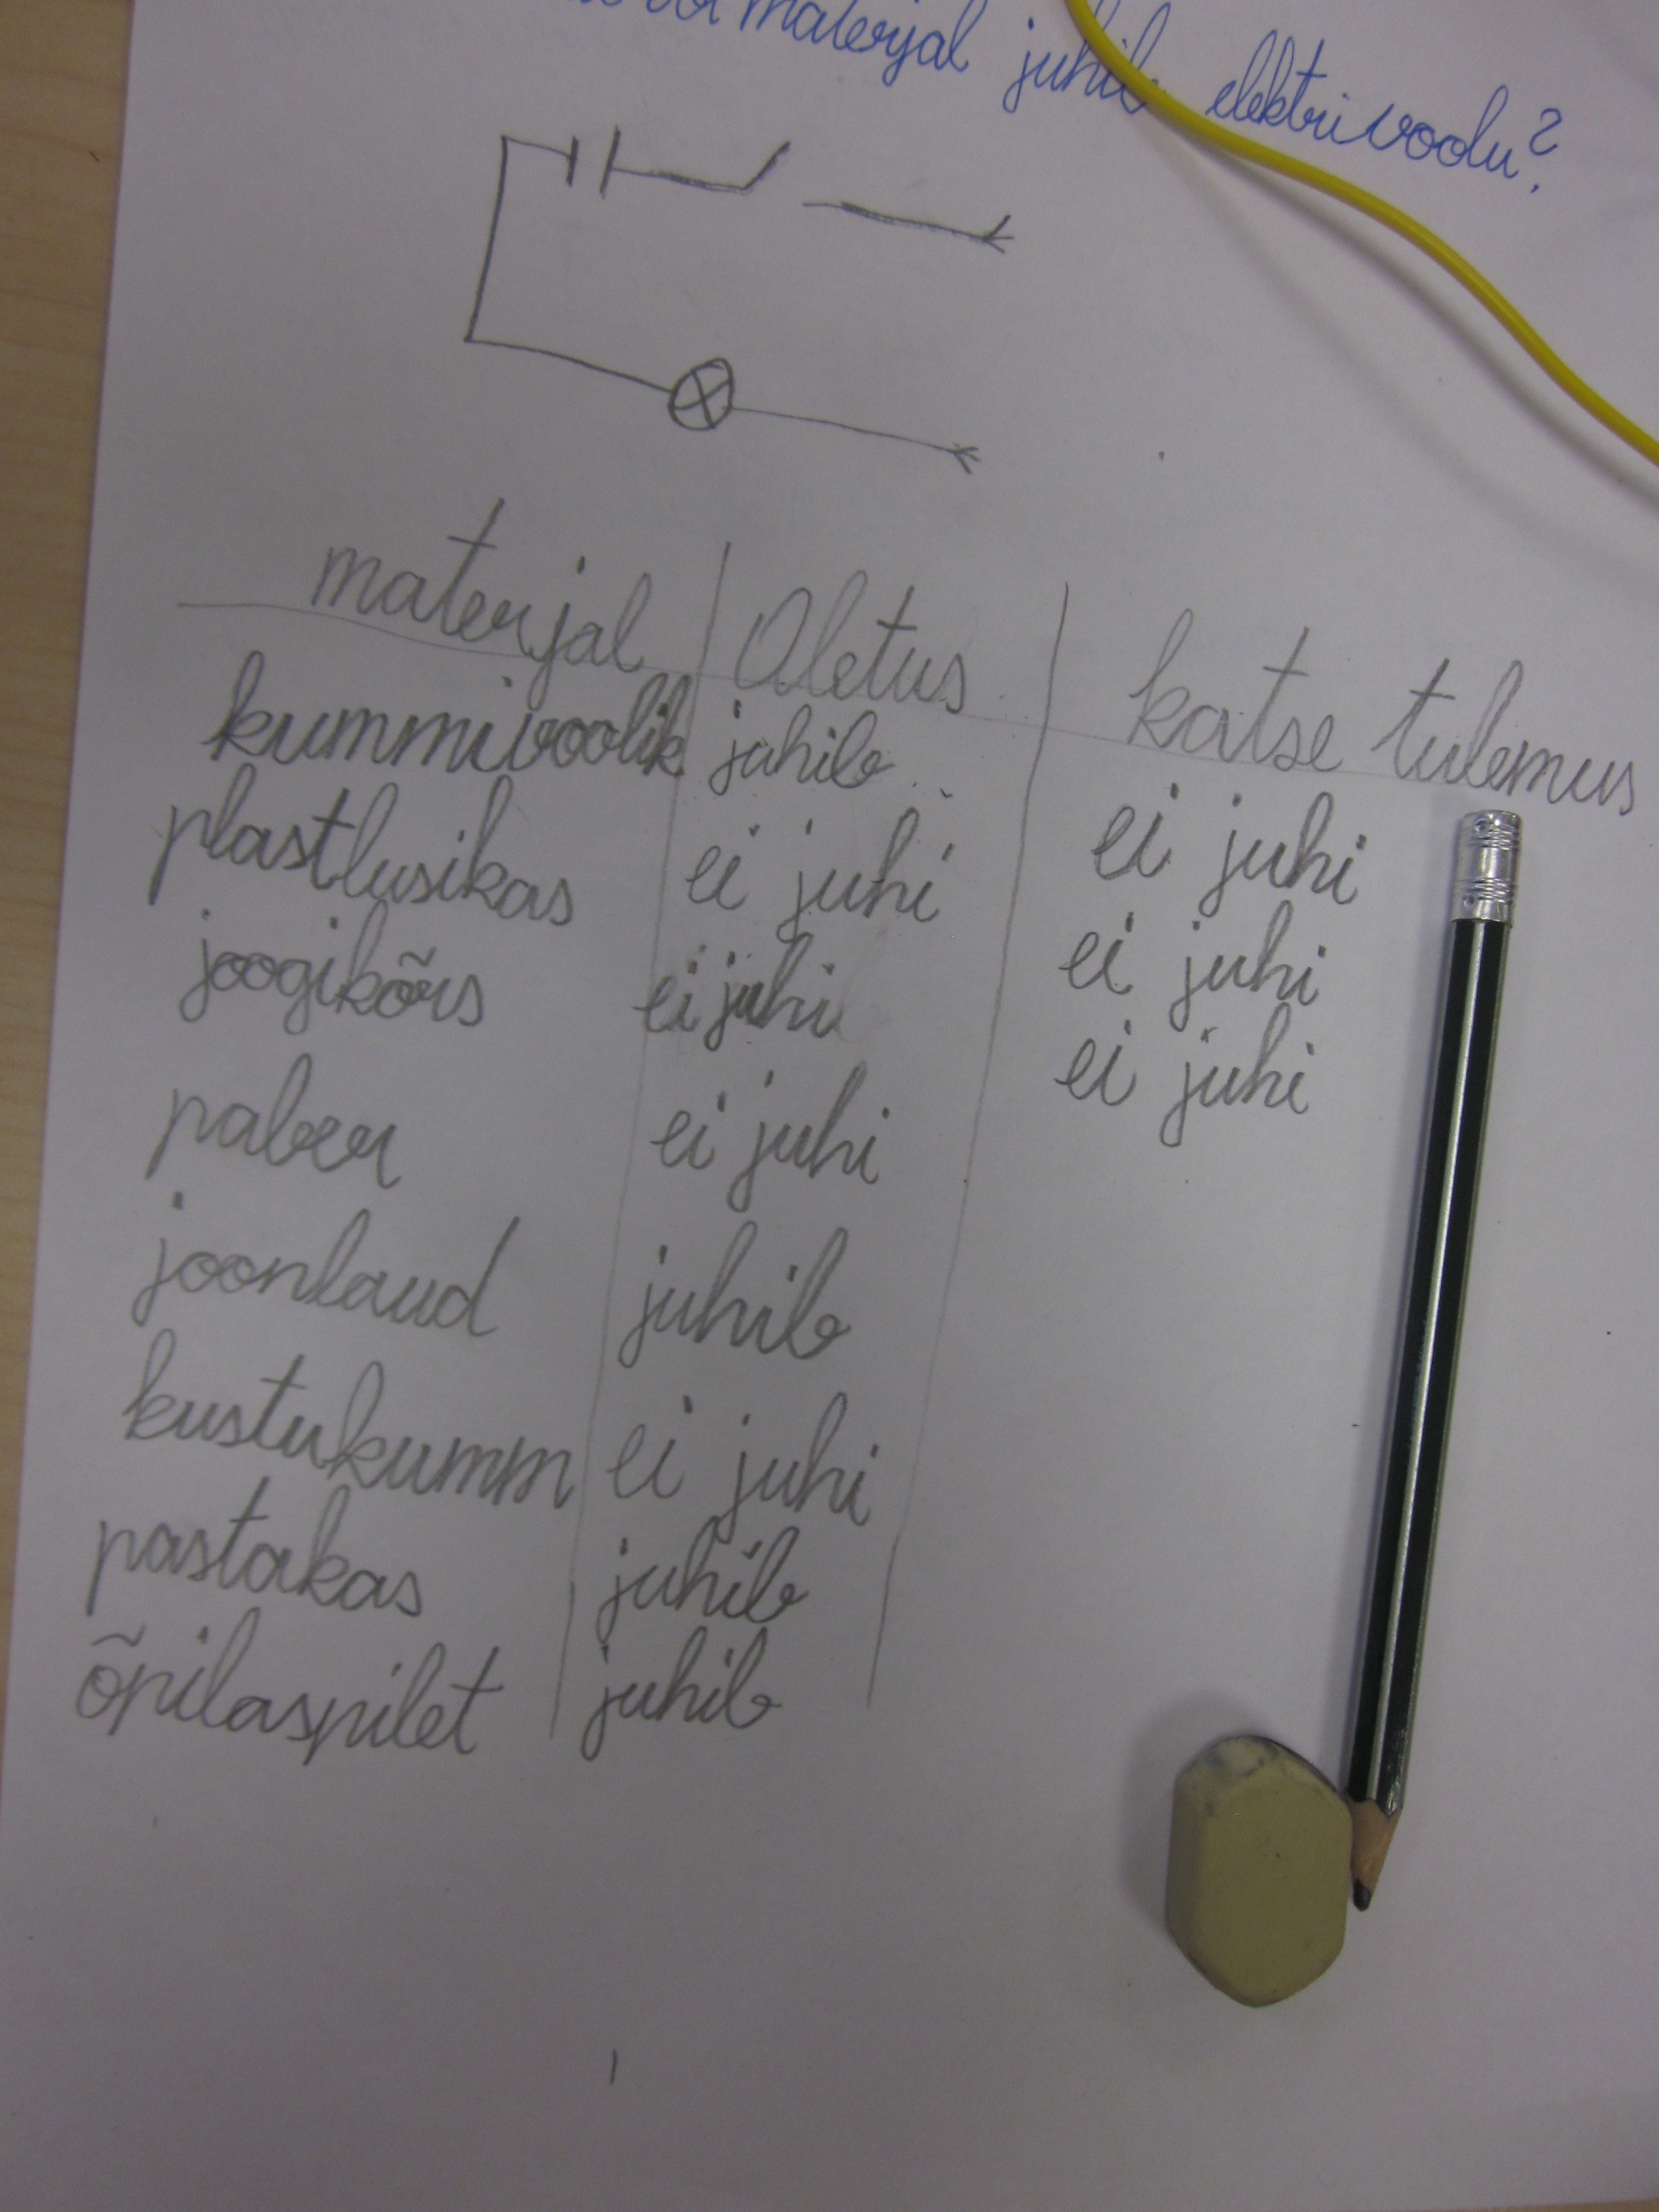 materjal juhib elektrivoolu?
materjal Oletus katse tulemus
kummivoolik juhib ei juhi
plastlusikas ei juhi ei juhi
joogikõrs ei juhi ei juhi
paber ei juhi
joonlaud juhib
kustukumm ei juhi
pastakas juhib
õpilaspilet juhib